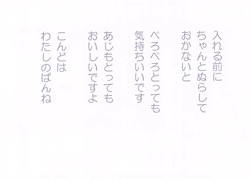 入れる前に
ちゃんとぬらして
おかないと
ぺろぺろとっても
気持ちいいです
あじもとっても
おいしいですよ
こんどは
わたしのばんね